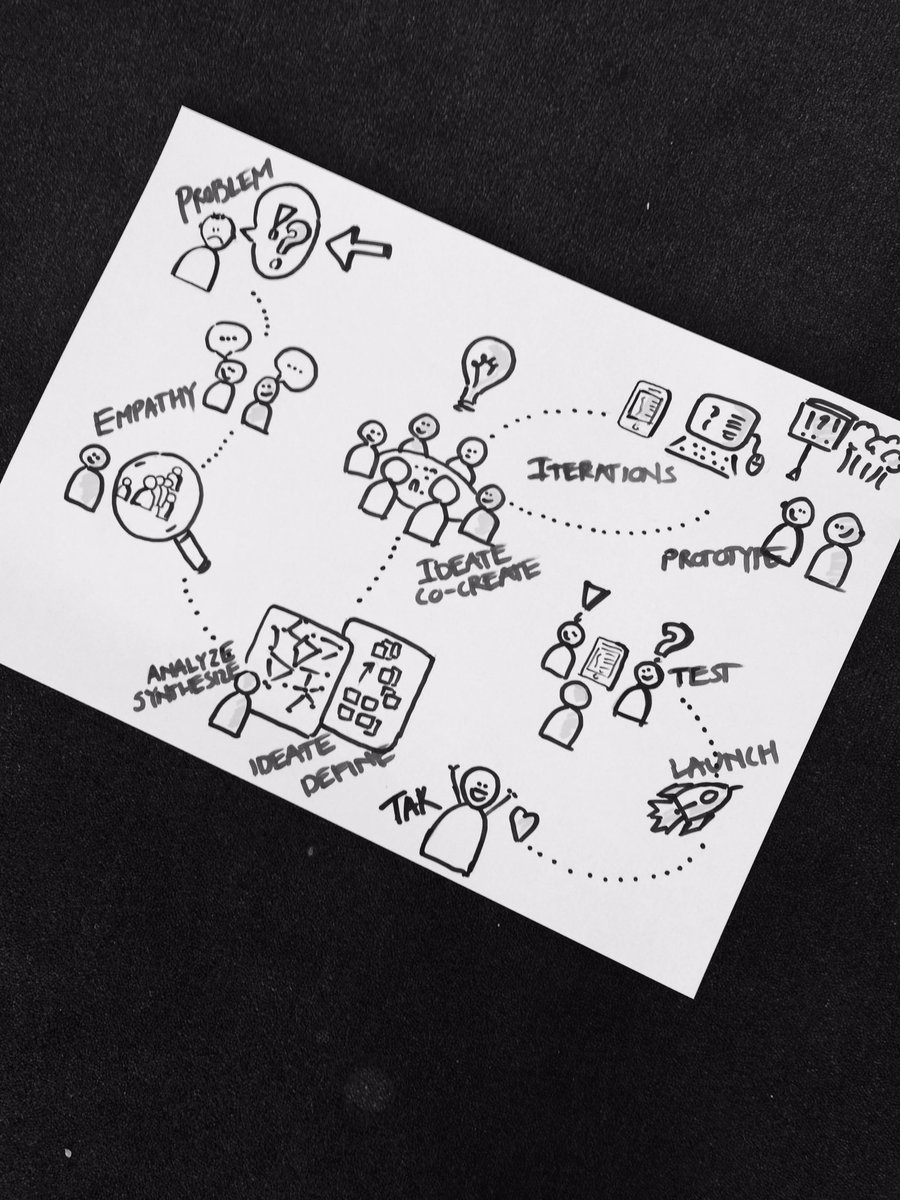 PROBLEM
!?
...
...
EMPATHY
ANALYZE
SYNTHESIZE
IDEATE
DEFINE
IDEATE
CO-CREATE
ITERATIONS
PROTOTYPE
!
?
TEST
LAUNCH
TAK